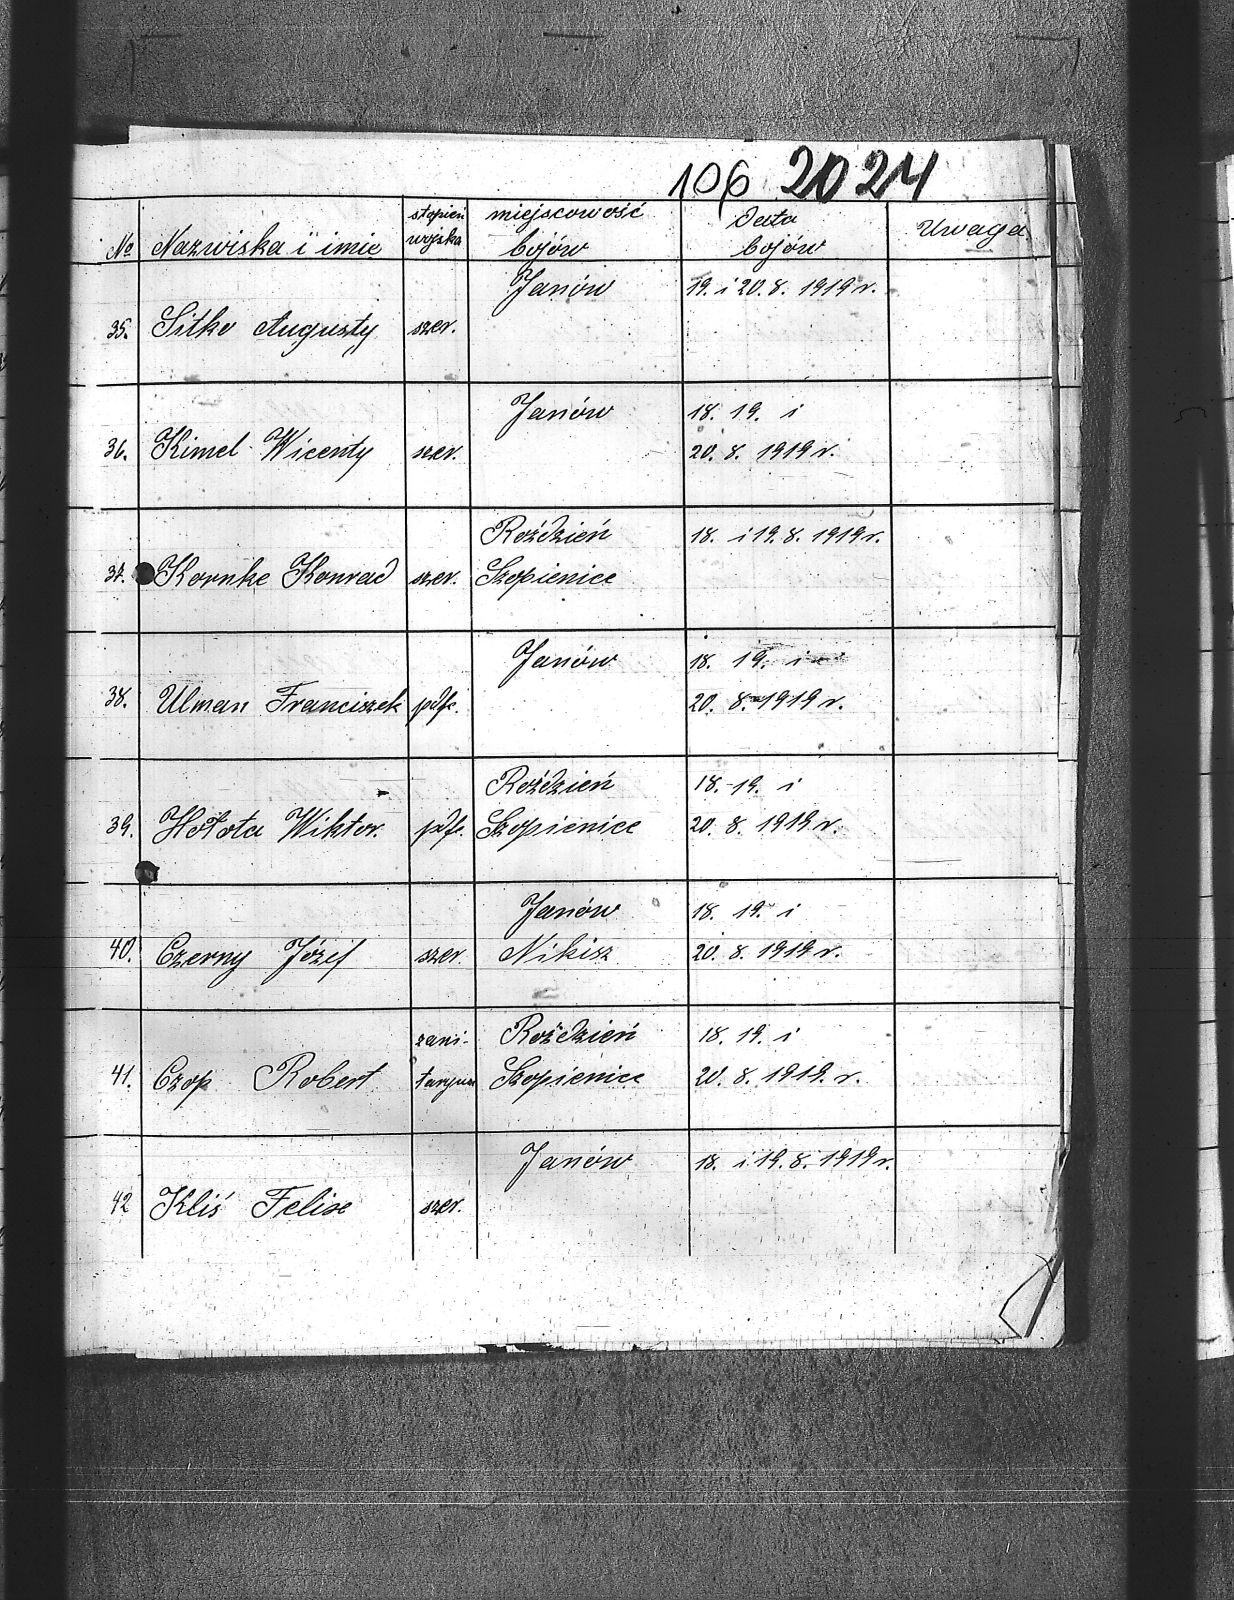 106 2024
№ Nazwiska i imie stopień wojska miejscowość bojów Data bojów Uwaga
Janów 19. i 20. 8. 1919 r.
35. Sitko Augusty szer.
Janów 18. 19. i
36. Kimel Wicenty szer. 20. 8. 1919 r.
Roździeń 18. i 19. 8. 1919 r.
37. Kornke Konrad szer. Szopienice
Janów 18. 19. i
38. Ulman Franciszek pdf. 20. 8. 1919 r.
Roździeń 18. 19. i
39. Hołota Wiktor. pdf. Szopienice 20. 8. 1919 r.
Janów 18. 19. i
40. Czerny Józef szer. Nikisz 20. 8. 1919 r.
zani- Roździeń 18. 19. i
41. Czop Robert Szopienice 20. 8. 1919. r.
Janów 18. i 19. 8. 1919 r.
42 Kliś Felix szer.